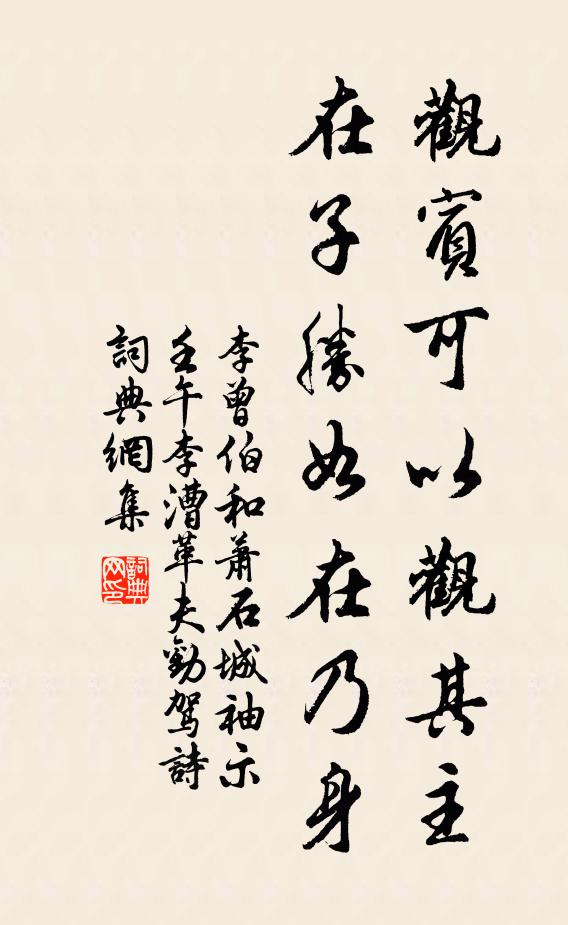 觀賓可以觀其主
在子勝如在乃身
李曾伯和蕭石城袖示
壬午李漕革夫勸駕詩
詞典網集
詞典网印